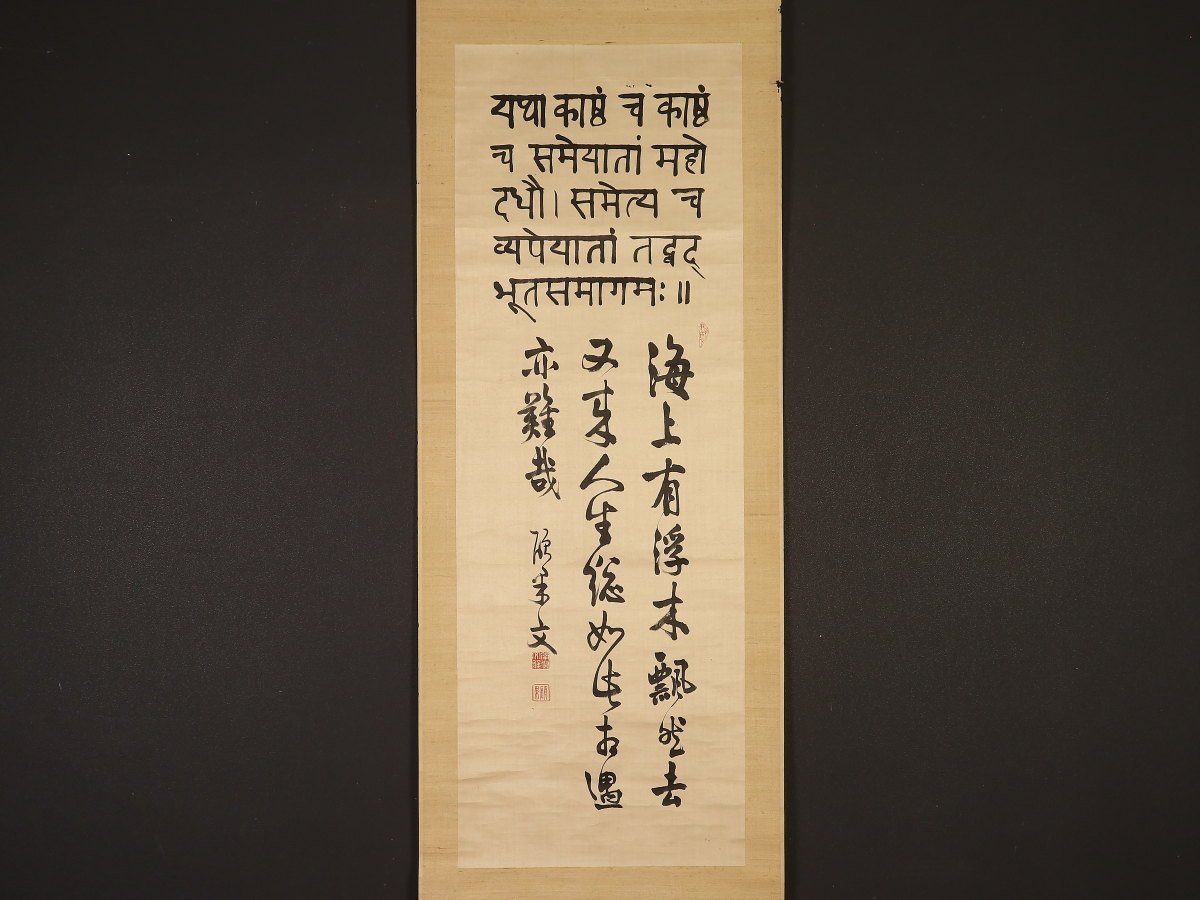 यथा काष्ठं च काष्ठं
च समेयातां महो
दधौ। समेत्य च
व्यपेयातां तद्वद्
भूतसमागमः॥
海上有浮木飄然去
又来人生総如此相遇
亦難哉